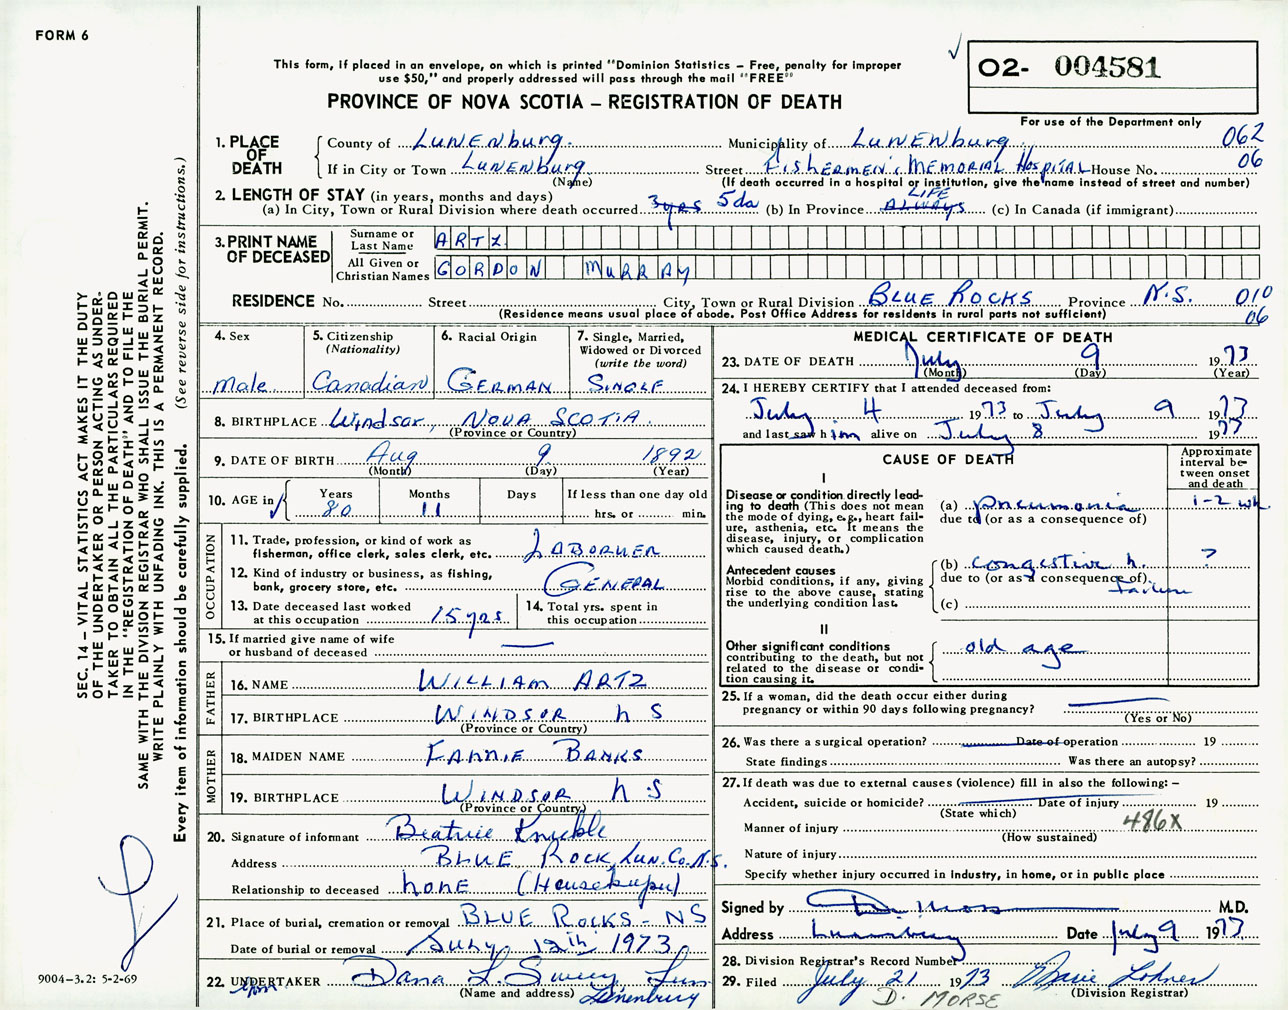 FORM 6
This form, if placed in an envelope, on which is printed "Dominion Statistics – Free, penalty for improper
use $50," and properly addressed will pass through the mail "FREE"
PROVINCE OF NOVA SCOTIA – REGISTRATION OF DEATH
O2- 004581
For use of the Department only
1. PLACE OF DEATH
County of Lunenburg. Municipality of Lunenburg 062
If in City or Town Lunenburg Street Fishermen's Memorial Hospital House No. 06
(Name) (If death occurred in a hospital or institution, give the name instead of street and number)
2. LENGTH OF STAY (in years, months and days) LIFE
(a) In City, Town or Rural Division where death occurred 3yrs 5da (b) In Province ALWAYS (c) In Canada (if immigrant)
3. PRINT NAME OF DECEASED
Surname or Last Name ARTZ
All Given or Christian Names GORDON MURRAY
RESIDENCE No. Street City, Town or Rural Division BLUE ROCKS Province N.S. 010
(Residence means usual place of abode. Post Office Address for residents in rural parts not sufficient) 06
4. Sex
male
5. Citizenship
(Nationality)
Canadian
6. Racial Origin
GERMAN
7. Single, Married,
Widowed or Divorced
(write the word)
SINGLE
8. BIRTHPLACE Windsor, NOVA SCOTIA
(Province or Country)
9. DATE OF BIRTH Aug 9 1892
(Month) (Day) (Year)
10. AGE in Years Months Days If less than one day old
80 11 hrs. or min.
OCCUPATION
11. Trade, profession, or kind of work as
fisherman, office clerk, sales clerk, etc. LABORER
12. Kind of industry or business, as fishing,
bank, grocery store, etc. GENERAL
13. Date deceased last worked
at this occupation 15 yrs
14. Total yrs. spent in
this occupation
15. If married give name of wife
or husband of deceased —
FATHER
16. NAME WILLIAM ARTZ
17. BIRTHPLACE WINDSOR N S
(Province or Country)
MOTHER
18. MAIDEN NAME FANNIE BANKS
19. BIRTHPLACE WINDSOR N.S
(Province or Country)
20. Signature of informant Beatrice Knickle
Address BLUE ROCK, Lun. Co. N.S.
Relationship to deceased NONE (Housekeeper)
21. Place of burial, cremation or removal BLUE ROCKS - NS
Date of burial or removal July 12th 1973
22. UNDERTAKER Dana L. Sweeny, Lun
(Name and address) Lunenburg
MEDICAL CERTIFICATE OF DEATH
23. DATE OF DEATH July 9 1973
(Month) (Day) (Year)
24. I HEREBY CERTIFY that I attended deceased from:
July 4 1973 to July 9 1973
and last saw him alive on July 8 1973
CAUSE OF DEATH
Approximate
interval be-
tween onset
and death
I
Disease or condition directly lead-
ing to death (This does not mean
the mode of dying, e.g., heart fail-
ure, asthenia, etc. It means the
disease, injury, or complication
which caused death.)
(a) pneumonia 1-2 wk
due to (or as a consequence of)
Antecedent causes
Morbid conditions, if any, giving
rise to the above cause, stating
the underlying condition last.
(b) congestive h. ?
due to (or as a consequence of) failure
(c)
II
Other significant conditions
contributing to the death, but not
related to the disease or condi-
tion causing it.
old age
25. If a woman, did the death occur either during
pregnancy or within 90 days following pregnancy?
(Yes or No)
26. Was there a surgical operation? Date of operation 19
State findings Was there an autopsy?
27. If death was due to external causes (violence) fill in also the following: –
Accident, suicide or homicide? Date of injury 19
(State which)
Manner of injury 486X
(How sustained)
Nature of injury
Specify whether injury occurred in industry, in home, or in public place
Signed by M.D.
Address Lunenburg Date July 9 1973
28. Division Registrar's Record Number
29. Filed July 21 1973
(Division Registrar)
D. MORSE
SEC. 14 – VITAL STATISTICS ACT MAKES IT THE DUTY
OF THE UNDERTAKER OR PERSON ACTING AS UNDER-
TAKER TO OBTAIN ALL THE PARTICULARS REQUIRED
IN THE "REGISTRATION OF DEATH" AND TO FILE THE
SAME WITH THE DIVISION REGISTRAR WHO SHALL ISSUE THE BURIAL PERMIT.
WRITE PLAINLY WITH UNFADING INK. THIS IS A PERMANENT RECORD.
Every item of information should be carefully supplied. (See reverse side for instructions.)
9004–3.2: 5-2-69